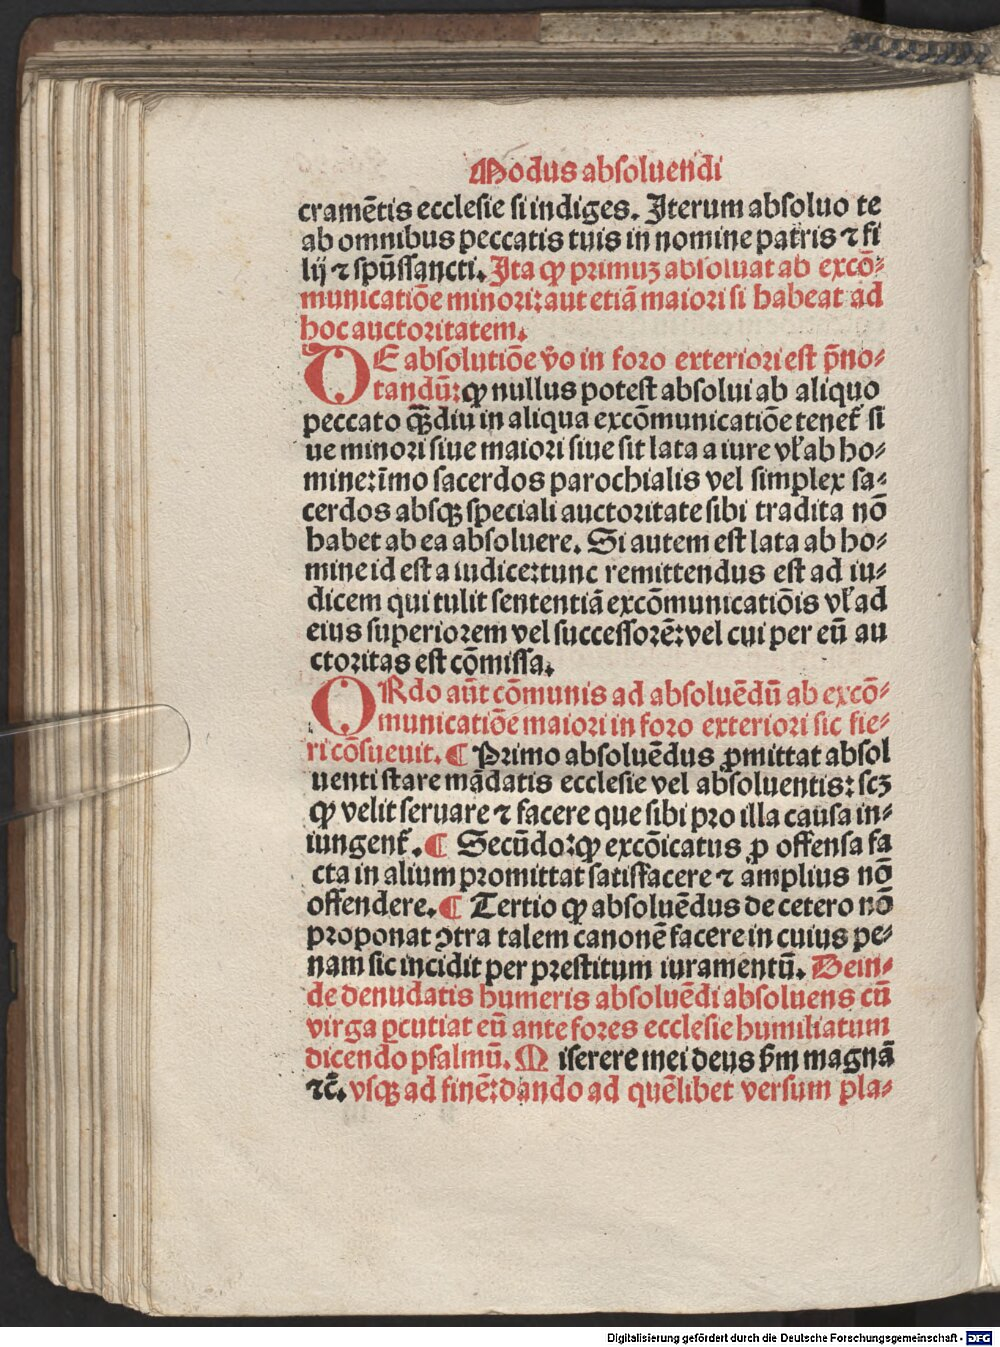 Modus absoluendi
cramētis ecclesie si indiges. Iterum absoluo te
ab omnibus peccatis tuis in nomine patris ⁊ fi
lij ⁊ spūssancti. Ita ꝙ primuꝫ absoluat ab excō⸗
municatiōe minori: aut etiā maiori si habeat ad
hoc auctoritatem.
DE absolutiōe v̄o in foro exteriori est p̄no⸗
tandū: ꝙ nullus potest absolui ab aliquo
peccato q̄ꝫdiu in aliqua excōmunicatiōe tenet̄ si
ue minori siue maiori siue sit lata a iure vł ab ho⸗
mine: īmo sacerdos parochialis vel simplex sa⸗
cerdos absqꝫ speciali auctoritate sibi tradita nō
habet ab ea absoluere. Si autem est lata ab ho⸗
mine id est a iudice: tunc remittendus est ad iu⸗
dicem qui tulit sententiā excōmunicatiōis vł ad
eius superiorem vel successorē: vel cui per eū au
ctoritas est cōmissa.
ORdo aūt cōmunis ad absoluēdū ab excō⸗
municatiōe maiori in foro exteriori sic fie⸗
ri cōsueuit. ¶ Primo absoluēdus ꝓmittat absol
uenti stare mādatis ecclesie vel absoluentis: scꝫ
ꝙ velit seruare ⁊ facere que sibi pro illa causa in⸗
iungent̄. ¶ Secūdo: ꝙ excōicatus ꝓ offensa fa
cta in alium promittat satisfacere ⁊ amplius nō
offendere. ¶ Tertio ꝙ absoluēdus de cetero nō
proponat ꝯtra talem canonē facere in cuius pe⸗
nam sic incidit per prestitum iuramentū. Dein⸗
de denudatis humeris absoluēdi absoluens cū
virga ꝑcutiat eū ante fores ecclesie humiliatum
dicendo psalmū. M iserere mei deus s̄m magnā
⁊c̄. vsqꝫ ad finē: dando ad quēlibet versum pla⸗
Digitalisierung gefördert durch die Deutsche Forschungsgemeinschaft - DFG